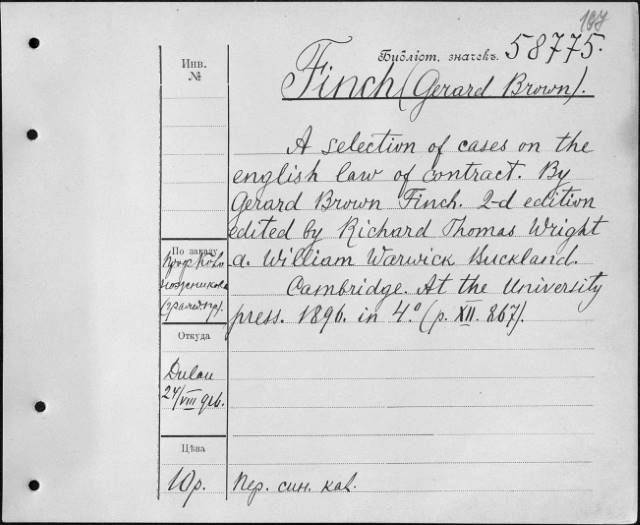 107
Библіот. значекъ. 58775.
Finch (Gerard Brown).
A selection of cases on the
english law of contract. By
Gerard Brown Finch. 2-d edition
edited by Richard Thomas Wright
a. William Warwick Buckland.
Cambridge. At the University
press. 1896. in 4.° (p. XII. 867).
Пер. син. кал.
Инв.
№
По заказу
Проф.
Откуда
Dulau
24/VIII 96.
Цѣна
10 р.